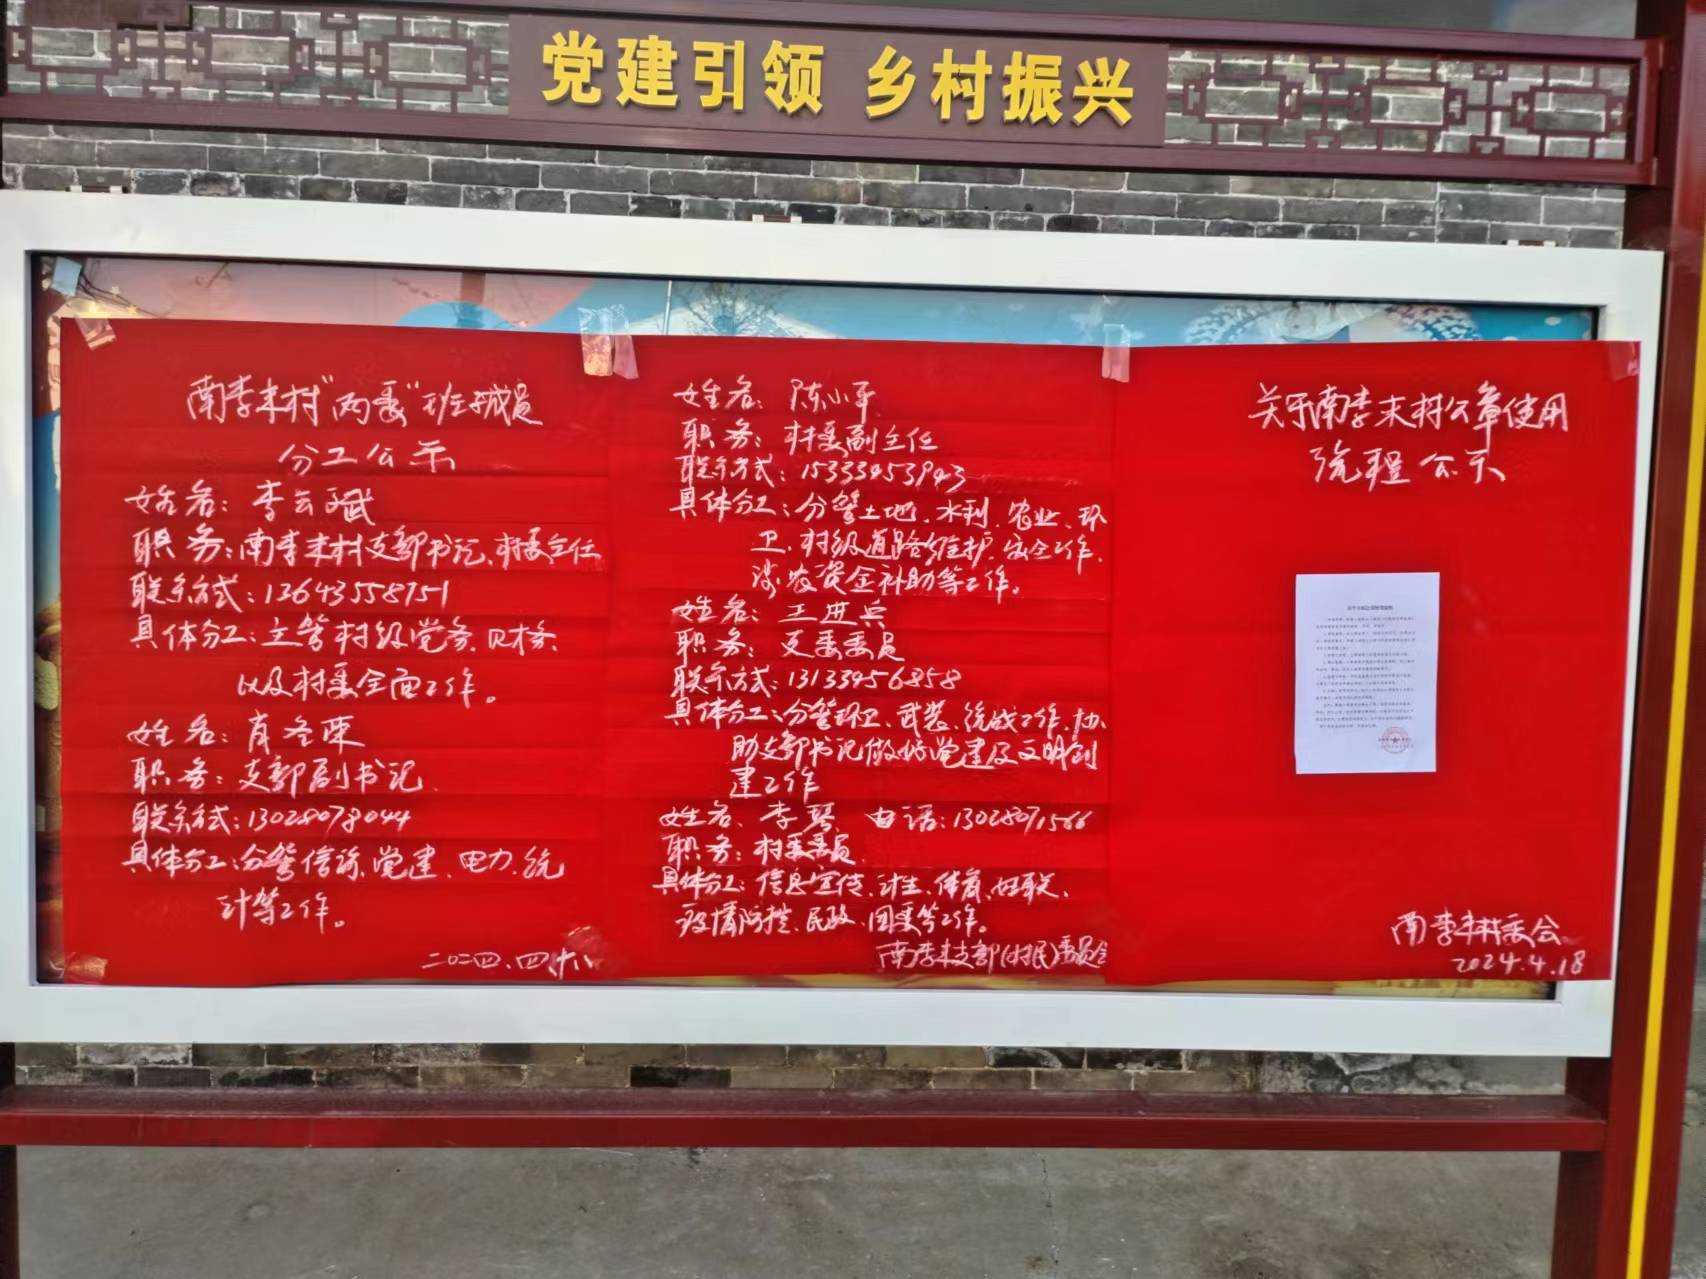 党建引领 乡村振兴
南李末村"两委"班子成员
分工公示
姓名：李云斌
职务：南李末村支部书记、村委主任
联系方式：13643558751
具体分工：主管村级党务、财务
以及村委全面工作。
姓名：肖冬荣
职务：支部副书记
联系方式：13028078044
具体分工：分管信访、党建、电力、统
计等工作。
二〇二四、四、十八
姓名：陈小平
职务：村委副主任
联系方式：15333453943
具体分工：分管土地、水利、农业、环
卫、村级道路维护、安全工作、
涉农资金补助等工作。
姓名：王进兵
职务：支委委员
联系方式：13133456858
具体分工：分管环卫、武装、统战工作、协
助支部书记做好党建及文明创
建工作
姓名、李琴 电话：13028071566
职务：村委委员
具体分工：信息宣传、计生、体育、妇联、
疫情防控、民政、团委等工作。
南李末支部(村民)委员会
关于南李末村公章使用
流程公示
南李末村委会
2024.4.18